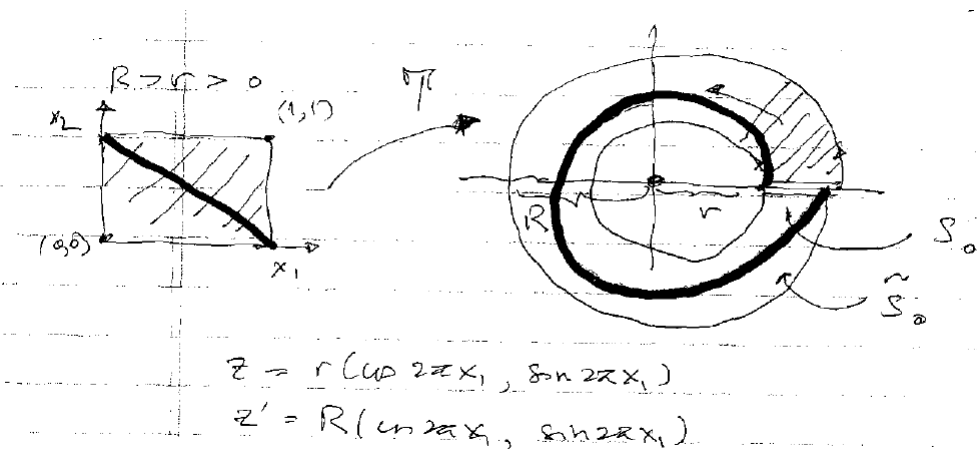 R > r > 0
π
x₂
(1,1)
(0,0)
x₁
R
r
r
S₀
S̃₀
z = r(cos 2πx₁, sin 2πx₁)
z' = R(cos 2πx₁, sin 2πx₁)